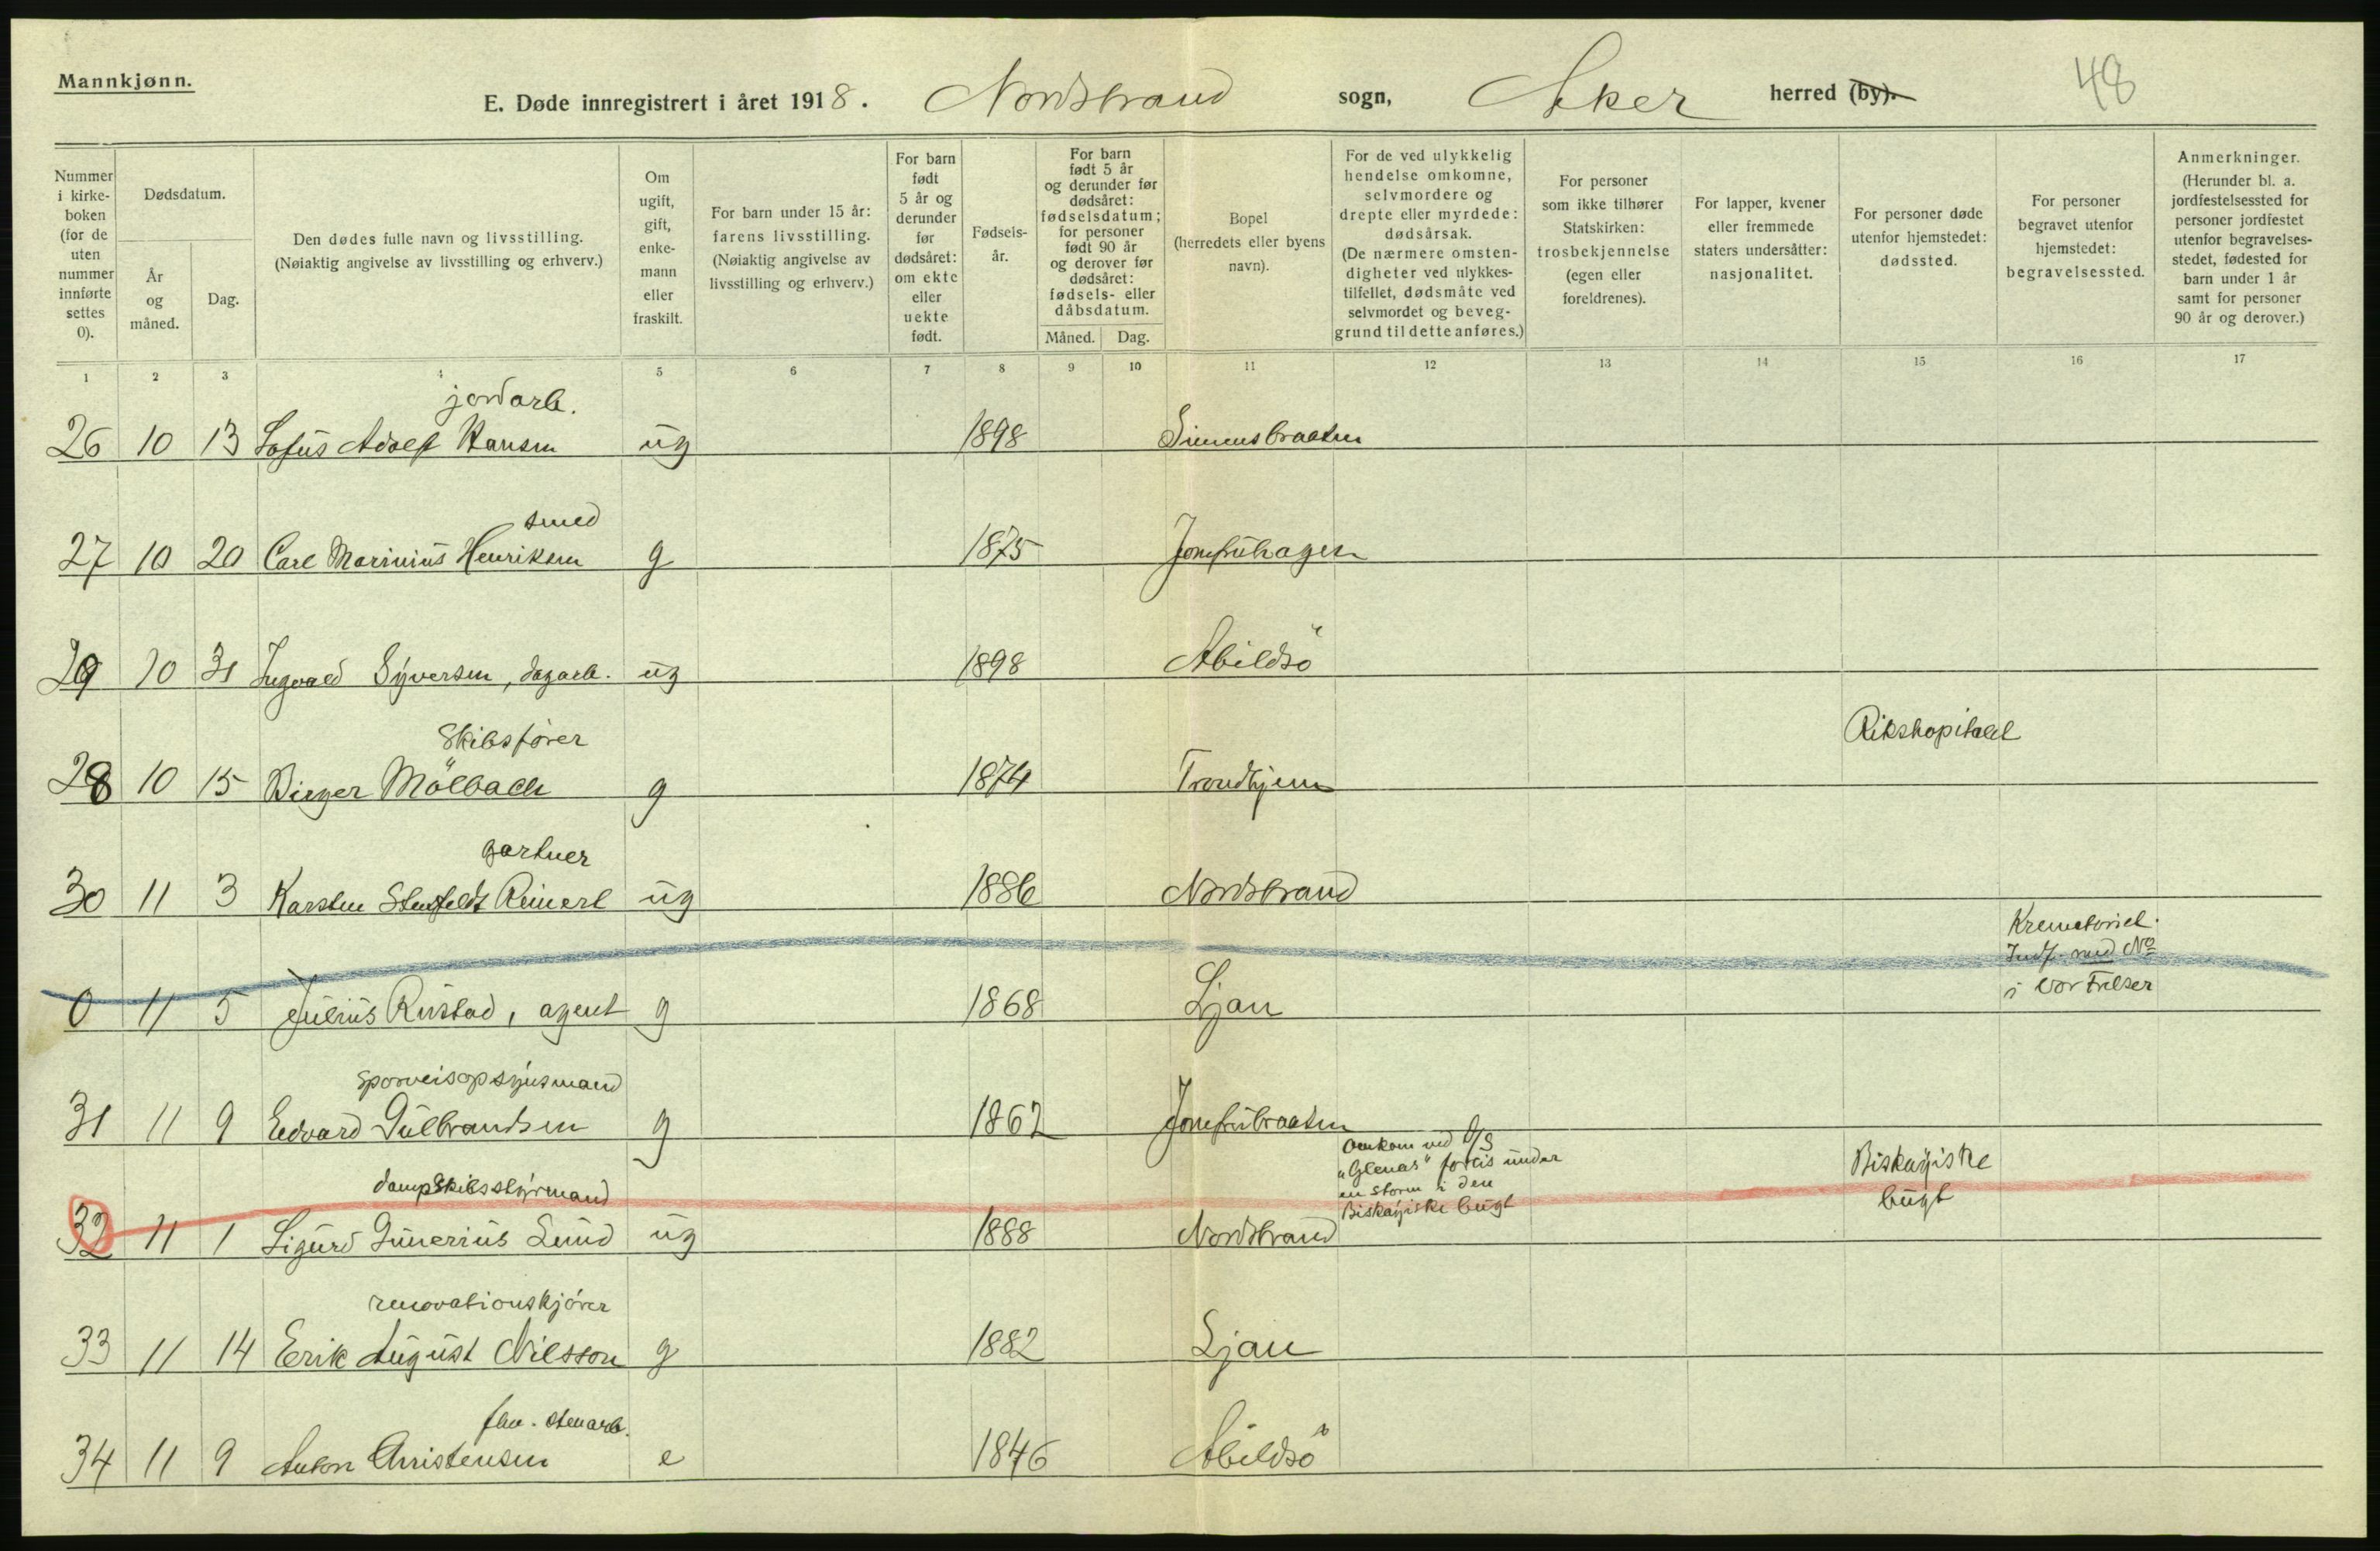 Mannkjønn.
E. Døde innregistrert i året 1918. Nordstrand sogn, Aker herred (by).
48
Nummer i kirke-boken (for de uten nummer innførte settes 0).
Dødsdatum.
År og måned.
Dag.
Den dødes fulle navn og livsstilling. (Nøiaktig angivelse av livsstilling og erhverv.)
Om ugift, gift, enke-mann eller fraskilt.
For barn under 15 år: farens livsstilling. (Nøiaktig angivelse av livsstilling og erhverv.)
For barn født 5 år og derunder før dødsåret: om ekte eller uekte født.
Fødsels-år.
For barn født 5 år og derunder før dødsåret: fødselsdatum; for personer født 90 år og derover før dødsåret: fødsels- eller dåbsdatum.
Måned. Dag.
Bopel (herredets eller byens navn).
For de ved ulykkelig hendelse omkomne, selvmordere og drepte eller myrdede: dødsårsak. (De nærmere omsten-digheter ved ulykkes-tilfellet, dødsmåte ved selvmordet og beveg-grund til dette anføres.)
For personer som ikke tilhører Statskirken: trosbekjennelse (egen eller foreldrenes).
For lapper, kvener eller fremmede staters undersåtter: nasjonalitet.
For personer døde utenfor hjemstedet: dødssted.
For personer begravet utenfor hjemstedet: begravelsessted.
Anmerkninger. (Herunder bl. a. jordfestelsessted for personer jordfestet utenfor begravelses-stedet, fødested for barn under 1 år samt for personer 90 år og derover.)
1 2 3 4 5 6 7 8 9 10 11 12 13 14 15 16 17
jordarb.
26 10 13 Lofus Adolf Hansen ug 1898 Simensbraaten
smed
27 10 20 Carl Marinius Henriksen g 1875 Jomfruhagen
29 10 31 Ingvald Syversen, dagarb. ug 1898 Abildsö
Skibsfører Rikshopitalet
28 10 15 Birger Mölbach g 1874 Trondhjem
gartner
30 11 3 Karsten Stenfeldt Reinert ug 1886 Nordstrand
Krematoriet.
Indf. med No
i vor Frelser
0 11 5 Julius Rustad, agent g 1868 Ljan
sporveisopsynsmand
31 11 9 Edvard Gulbrandsen g 1862 Jomfrubraaten
dampskibsstyrmand
Omkom ved D/S
"Glenas" forlis under
en storm i den
Biskayiske bugt
Biskayiske
bugt
32 11 1 Sigurd Gunerius Lund ug 1888 Nordstrand
renovationskjører
33 11 14 Erik August Nilsson g 1882 Ljan
fhv. stenarb.
34 11 9 Anton Christensen e 1846 Abildsö